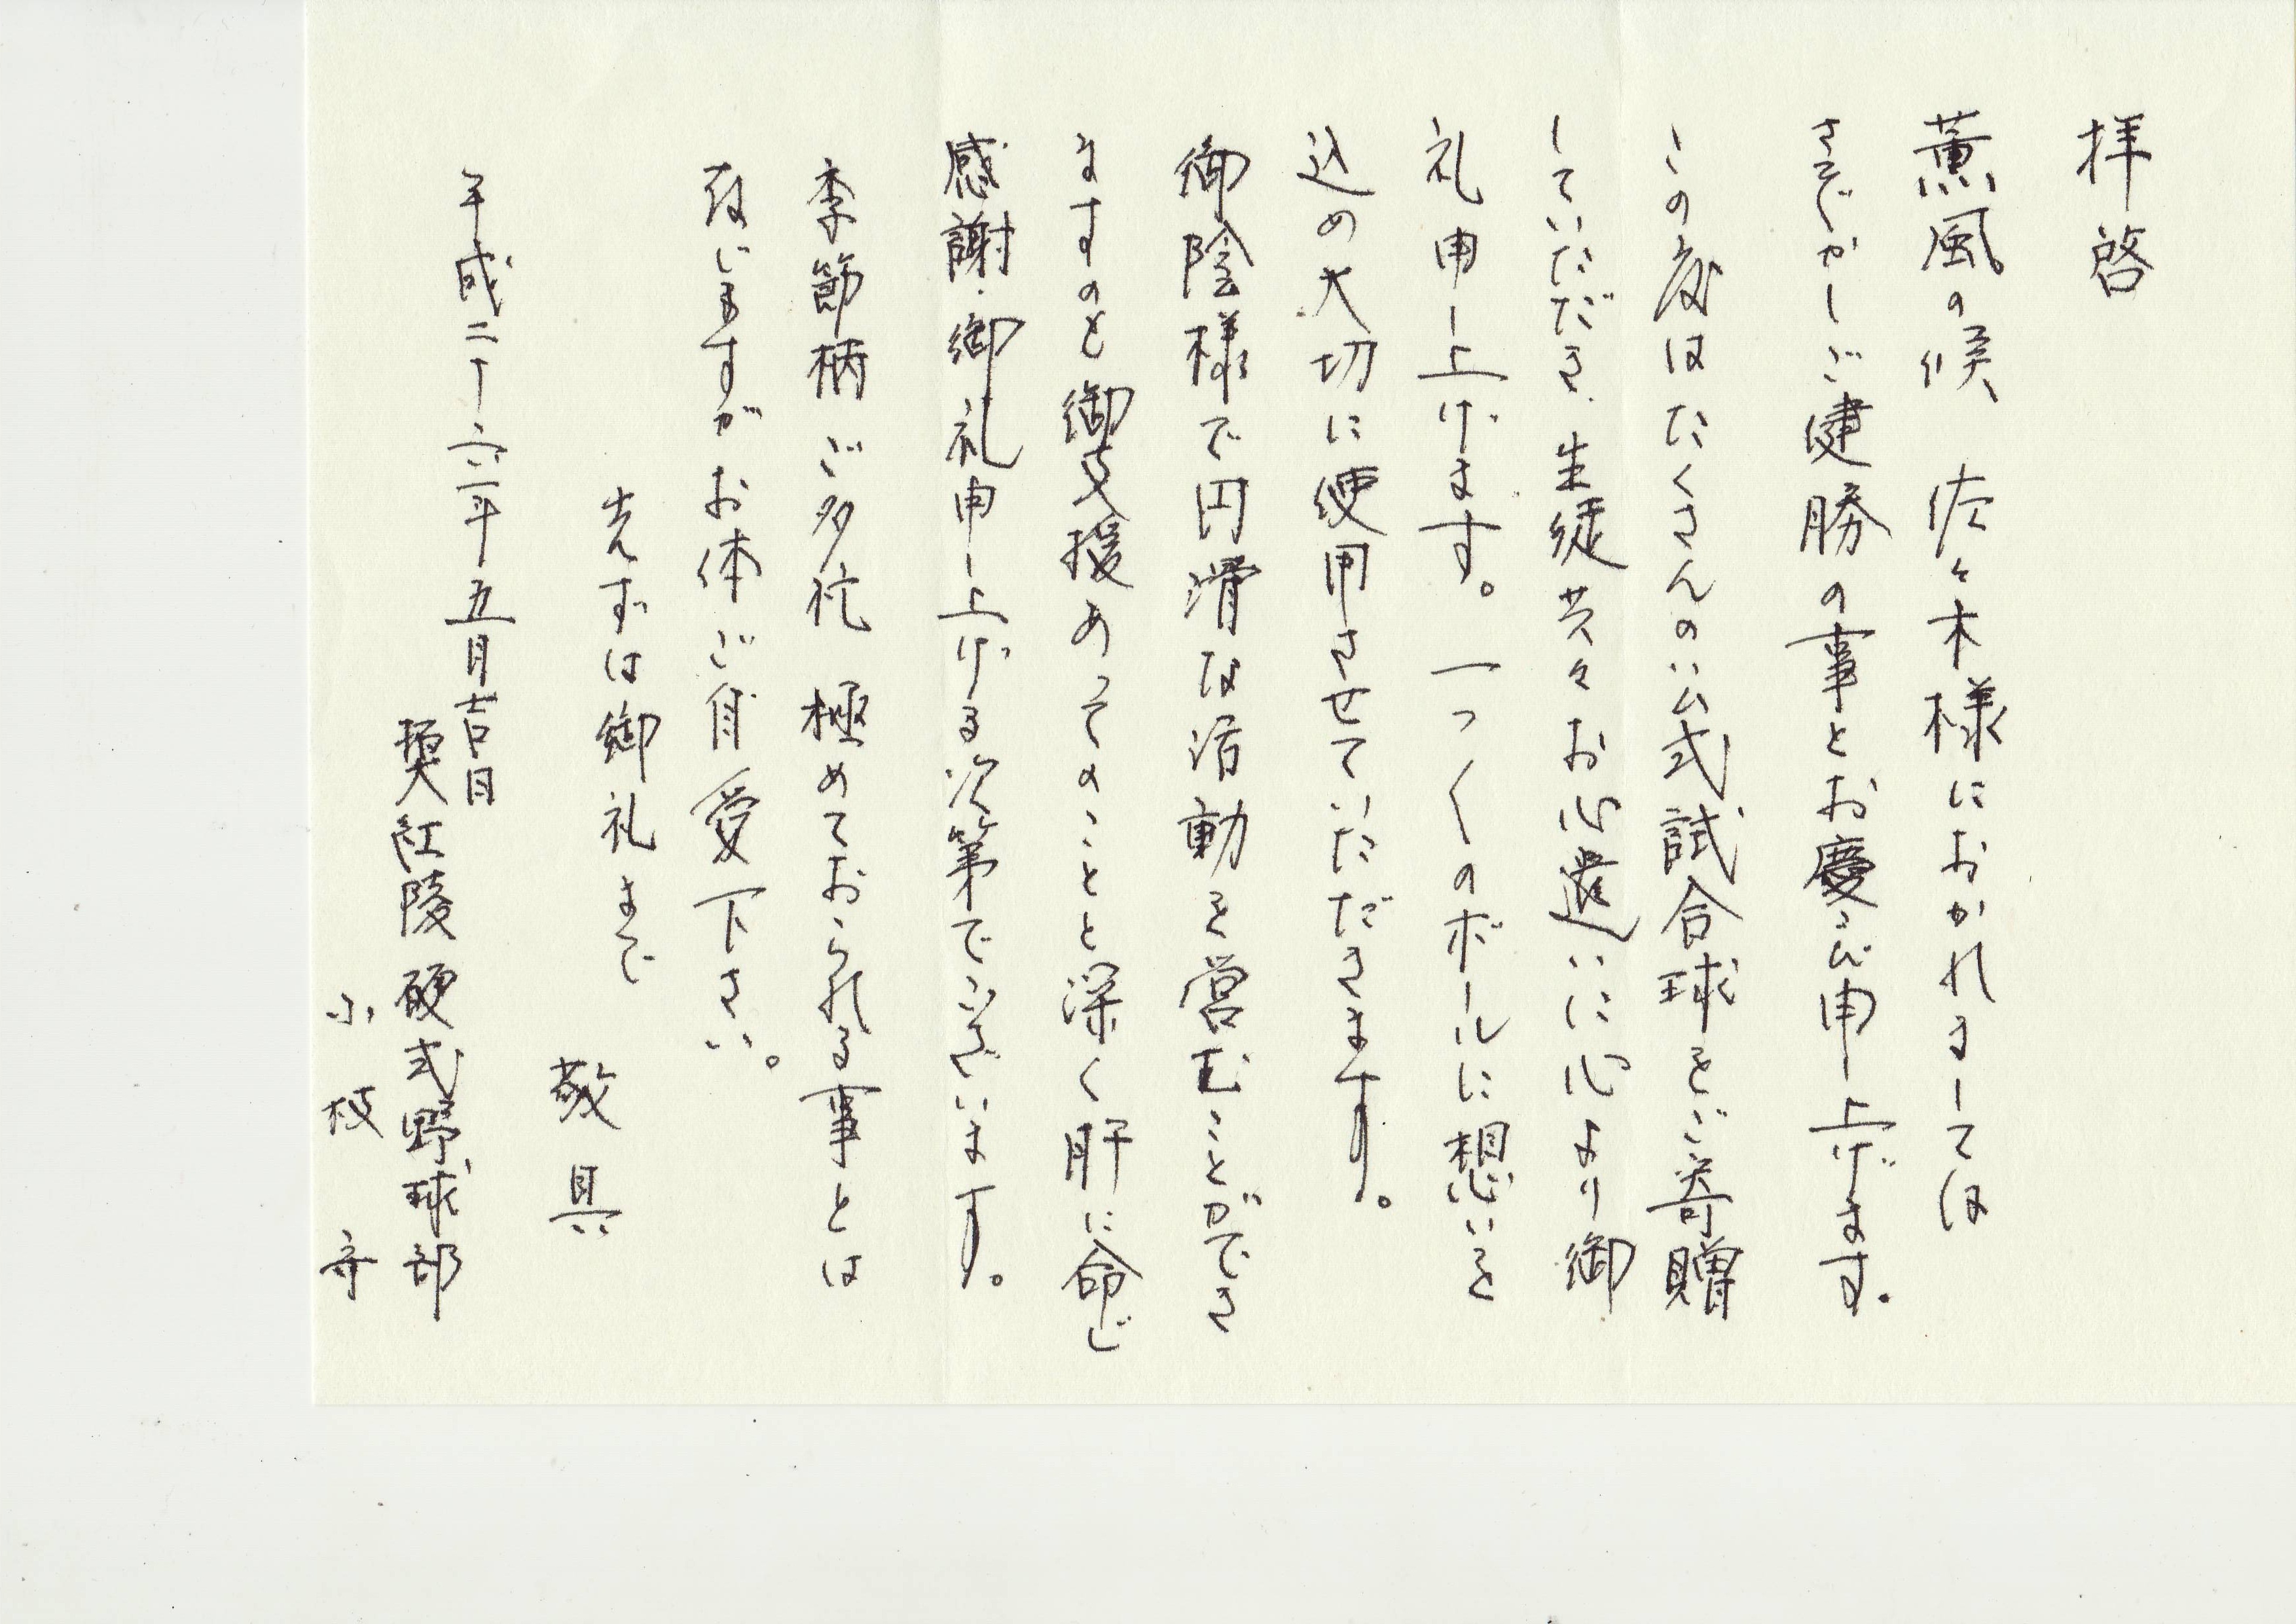 拝啓
薫風の候 佐々木様におかれましては
さぞかしご健勝の事とお慶び申し上げます。
この度はたくさんの公式試合球をご寄贈
していただき、生徒共々お心遣いに心より御
礼申し上げます。一つ〱のボールに想いを
込め大切に使用させていただきます。
御陰様で円滑な活動を営むことができ
ますのも御支援あってのことと深く肝に命じ
感謝・御礼申し上げる次第でございます。
季節柄 ご多忙 極めておられる事とは
存じますが お体ご自愛下さい。
先ずは御礼まで
敬具
平成二十六年五月吉日
紅陵 硬式野球部
小枝 守